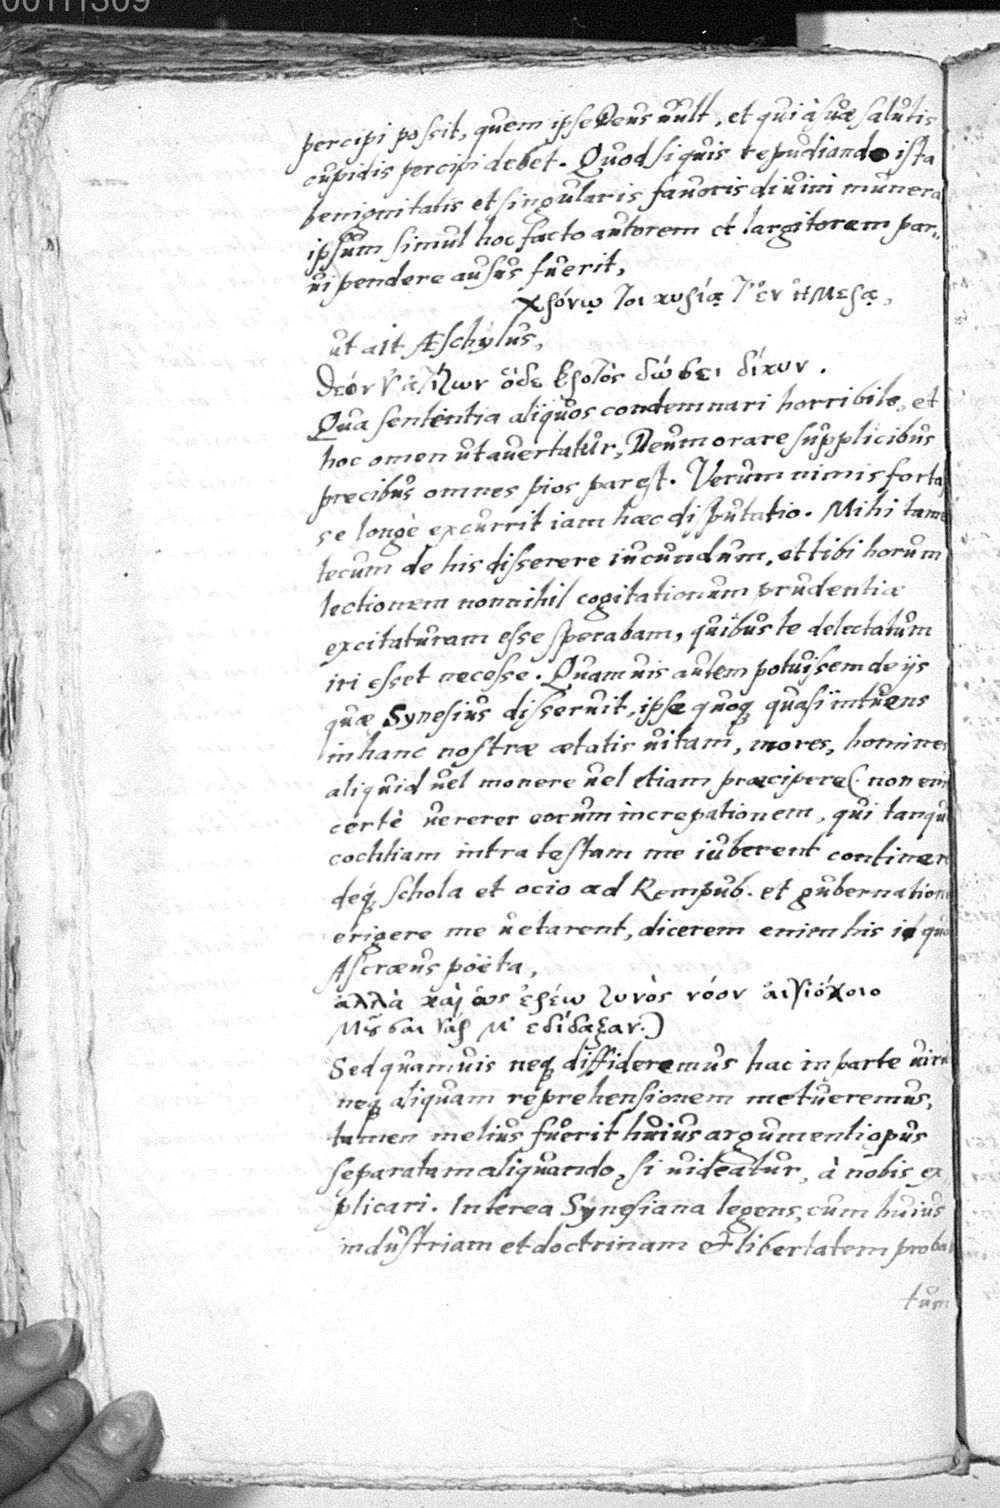 00111309
percipi possit, quem ipse Deus uult, et qui à suæ salutis
cupidis percipi debet. Quod si quis repudiando ista
benignitatis et singularis fauoris diuini munera
ipsum simul hoc facto autorem et largitorem par„
ui pendere ausus fuerit,
χρόνῳ τοι κυρίᾳ τ' ἐν ἡμέρᾳ,
ut ait Æschylus,
θεόν γ' ἀτίζων ὅδε βροτός δώσει δίκην.
Qua sententia aliquos condemnari horribile, et
hoc omen ut auertatur, Deum orare supplicibus
precibus omnes pios par est. Verum nimis forta
se longè excurrit iam hæc disputatio. Mihi tame
tecum de his disserere iucundum, et tibi horum
lectionem nonnihil cogitationum prudentiæ
excitaturam esse sperabam, quibus te delectatum
iri esset necesse. Quamuis autem potuissem de ijs
quæ Synesius disseruit, ipse quoq; quasi intuens
in hanc nostræ ætatis uitam, mores, homines
aliquid uel monere uel etiam præcipere (non eni
certè uererer eorum increpationem, qui tanqu
cochliam intra testam me iuberent continer
deq; schola et ocio ad Rempub. et gubernation
erigere me uetarent, dicerem enim his id quo
Ascræus poëta,
ἀλλὰ καὶ ὣς ἐρέω ζυνὸς νόον αἰγιόχοιο
Μοῦσαι γάρ μ' ἐδίδαξαν.)
Sed quamuis neq; diffideremus hac in parte uiri
neq; aliquam reprehensionem metueremus,
tamen melius fuerit huius argumenti opus
separatum aliquando, si uideatur, à nobis ex
plicari. Interea Synesiana legens, cum huius
industriam et doctrinam & libertatem proba
tum